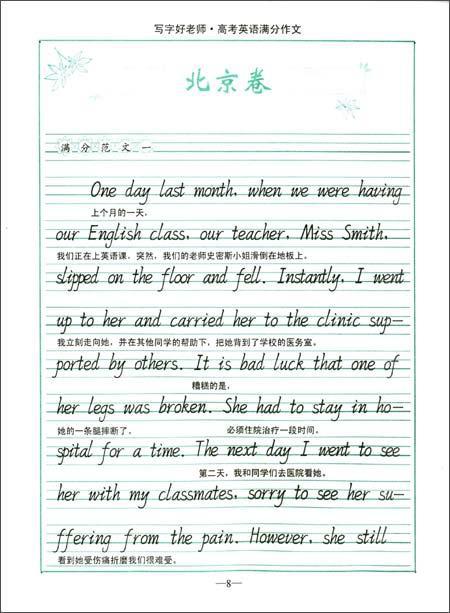 写字好老师·高考英语满分作文
北京卷
满分范文一
One day last month, when we were having
上个月的一天，
our English class, our teacher, Miss Smith,
我们正在上英语课，突然，我们的老师史密斯小姐滑倒在地板上。
slipped on the floor and fell. Instantly, I went
up to her and carried her to the clinic sup-
我立刻走向她，并在其他同学的帮助下，把她背到了学校的医务室。
ported by others. It is bad luck that one of
糟糕的是，
her legs was broken. She had to stay in ho-
她的一条腿摔断了。 必须住院治疗一段时间。
spital for a time. The next day I went to see
第二天，我和同学们去医院看她。
her with my classmates, sorry to see her su-
ffering from the pain. However, she still
看到她受伤痛折磨我们很难受。
—8—